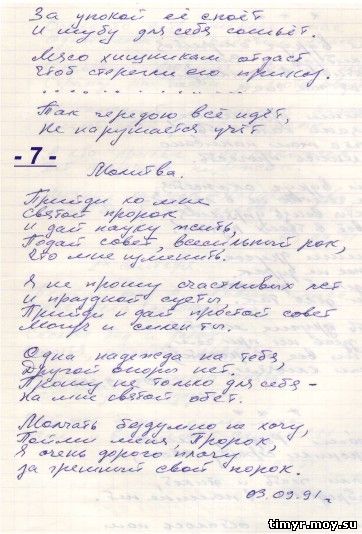 За упокой её споёт
И шубу для себя сошьёт.
Мясо хищникам отдаст
Чтоб стерегли его приказ.
.... .. . . . . . ....
Так чередою всё идёт,
Не нарушается учёт
- 7 -
Молитва.
Прийди ко мне
святой пророк
и дай науку жить,
Подай совет, всесильный рок,
Что мне изменить.
Я не прошу счастливых лет
И праздной суеты,
Прийди и дай простой совет
Могуч и силен ты.
Одна надежда на тебя,
Другой опоры нет.
Прошу не только для себя -
На мне святой обет.
Молчать бездумно не хочу,
Пойми меня, Пророк,
Я очень дорого плачу
за грешный свой порок.
03.09.91 г.
timyr.moy.su